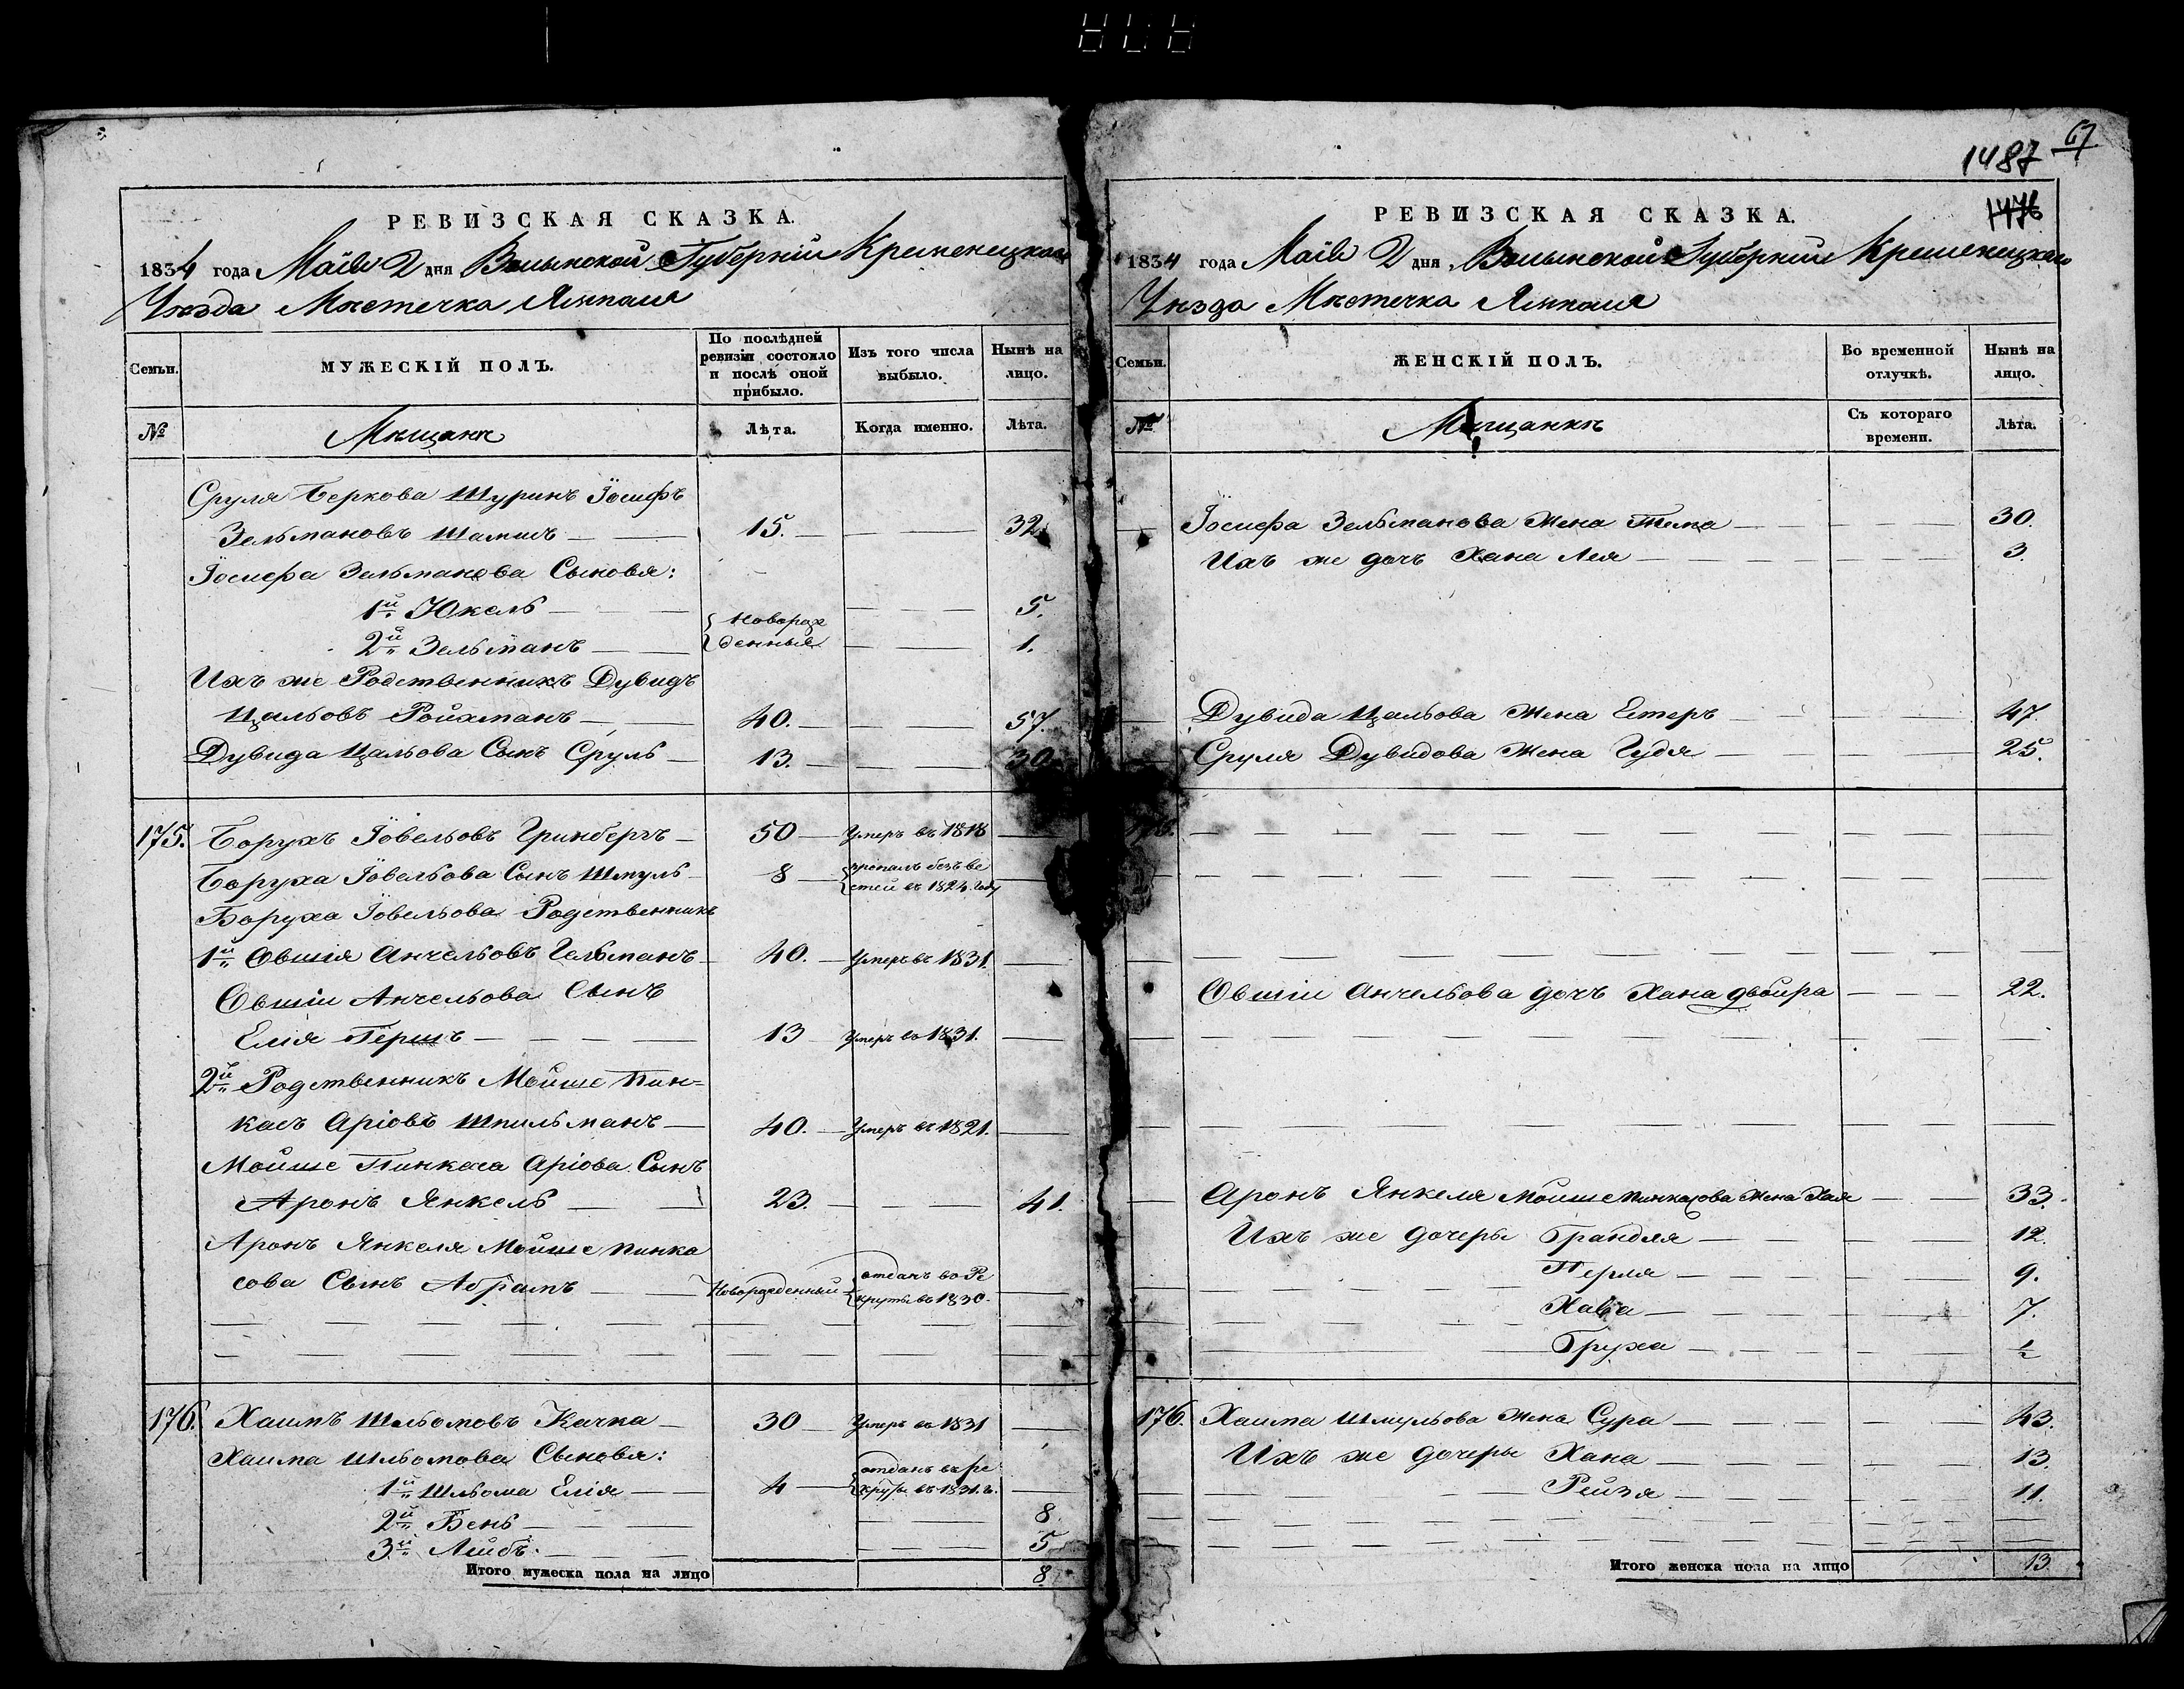 67
1487
1476
РЕВИЗСКАЯ СКАЗКА.
1834 года Маія 2 дня Волынской Губерніи Кременецкаго
Уѣзда Мѣстечка Ямполя
Семьи. МУЖЕСКІЙ ПОЛЪ. По послѣдней ревизіи состояло и послѣ оной прибыло. Изъ того числа выбыло. Нынѣ на лицо.
№ Мѣщане Лѣта. Когда именно. Лѣта.
Сруля Беркова Шуринъ Іосифъ
Зельмановъ 15. 32.
Іосифа Зельманова Сыновя:
1й Юкель 5.
Новорож
2й Зельманъ денные 1.
Ихъ же Родственникъ Дувидъ
Цальовъ Ройхманъ 40. 57.
Дувида Цальова Сынъ Сруль 13. 30.
175. Борухъ Іовельовъ Гринбергъ 50 Умеръ въ 1818
Боруха Іовельова Сынъ Шмуль 8 пропалъ безъ ве
стей въ 1824. году
Боруха Іовельова Родственникъ
1й Овшія Анчельовъ Гельманъ 40. Умеръ въ 1831.
Овшіи Анчельова Сынъ
Елія Гершъ 13 Умеръ въ 1831.
2й Родственникъ Мойше Пин=
касъ Аріовъ Шпильманъ 40. Умеръ въ 1821.
Мойше Пинкаса Аріова Сынъ
Аронъ Янкель 23. 41.
Аронъ Янкеля Мойше Пинка
сова Сынъ Абрамъ Новорожденный отданъ въ Ре
круты въ 1830.
176. Хаимъ Шльомовъ Качка 30 Умеръ въ 1831
Хаима Шльомова Сыновя:
1й Шльома Елія 4 отданъ въ ре
круты въ 1831. г.
2й Бень 8.
3й Лейбъ 5
Итого мужеска пола на лицо 8
РЕВИЗСКАЯ СКАЗКА.
1834 года Маія 2 дня Волынской Губерніи Кременецкаго
Уѣзда Мѣстечка Ямполя
Семьи. ЖЕНСКІЙ ПОЛЪ. Во временной отлучкѣ. Нынѣ на лицо.
№ Мѣщанки Съ котораго времени. Лѣта.
Іосифа Зельманова Жена 30.
Ихъ же дочь Хана Лея 3.
Дувида Цальова Жена Естеръ 47.
Сруля Дувидова Жена Гудя 25.
Овшіи Анчельова дочь Хана двойра 22.
Аронъ Янкеля Мойше Пинкасова Жена Хая 33.
Ихъ же дочеры Брандля 12.
Перля 9.
Хава 7.
Бруха ½
176. Хаима Шмульова Жена Сура 43.
Ихъ же дочеры Хана 13.
Рейзя 11.
Итого женска пола на лицо 13